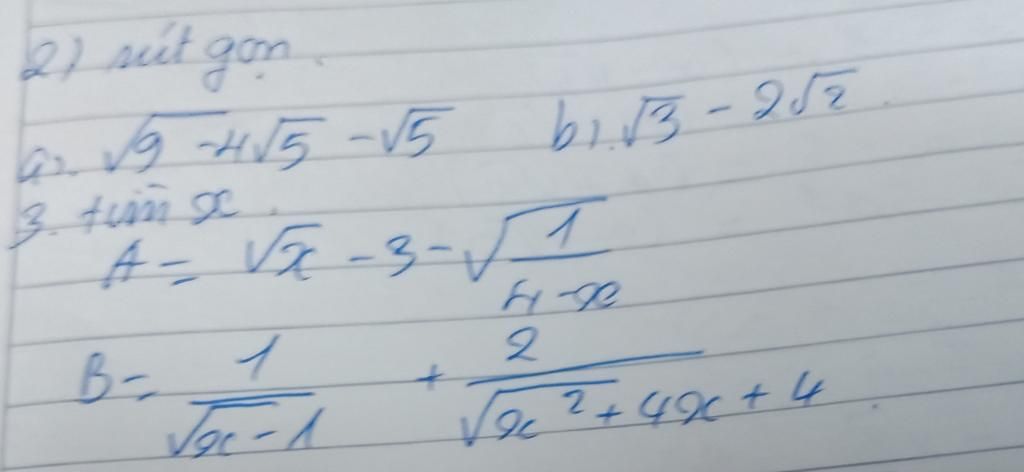 2) rút gọn.
a). √9 - 4√5 - √5 b). √3 - 2√2.
3. tìm x.
A = √x - 3 - √(1/(4 - x))
B = 1/(√x - 1) + 2/(√x² + 4x + 4).